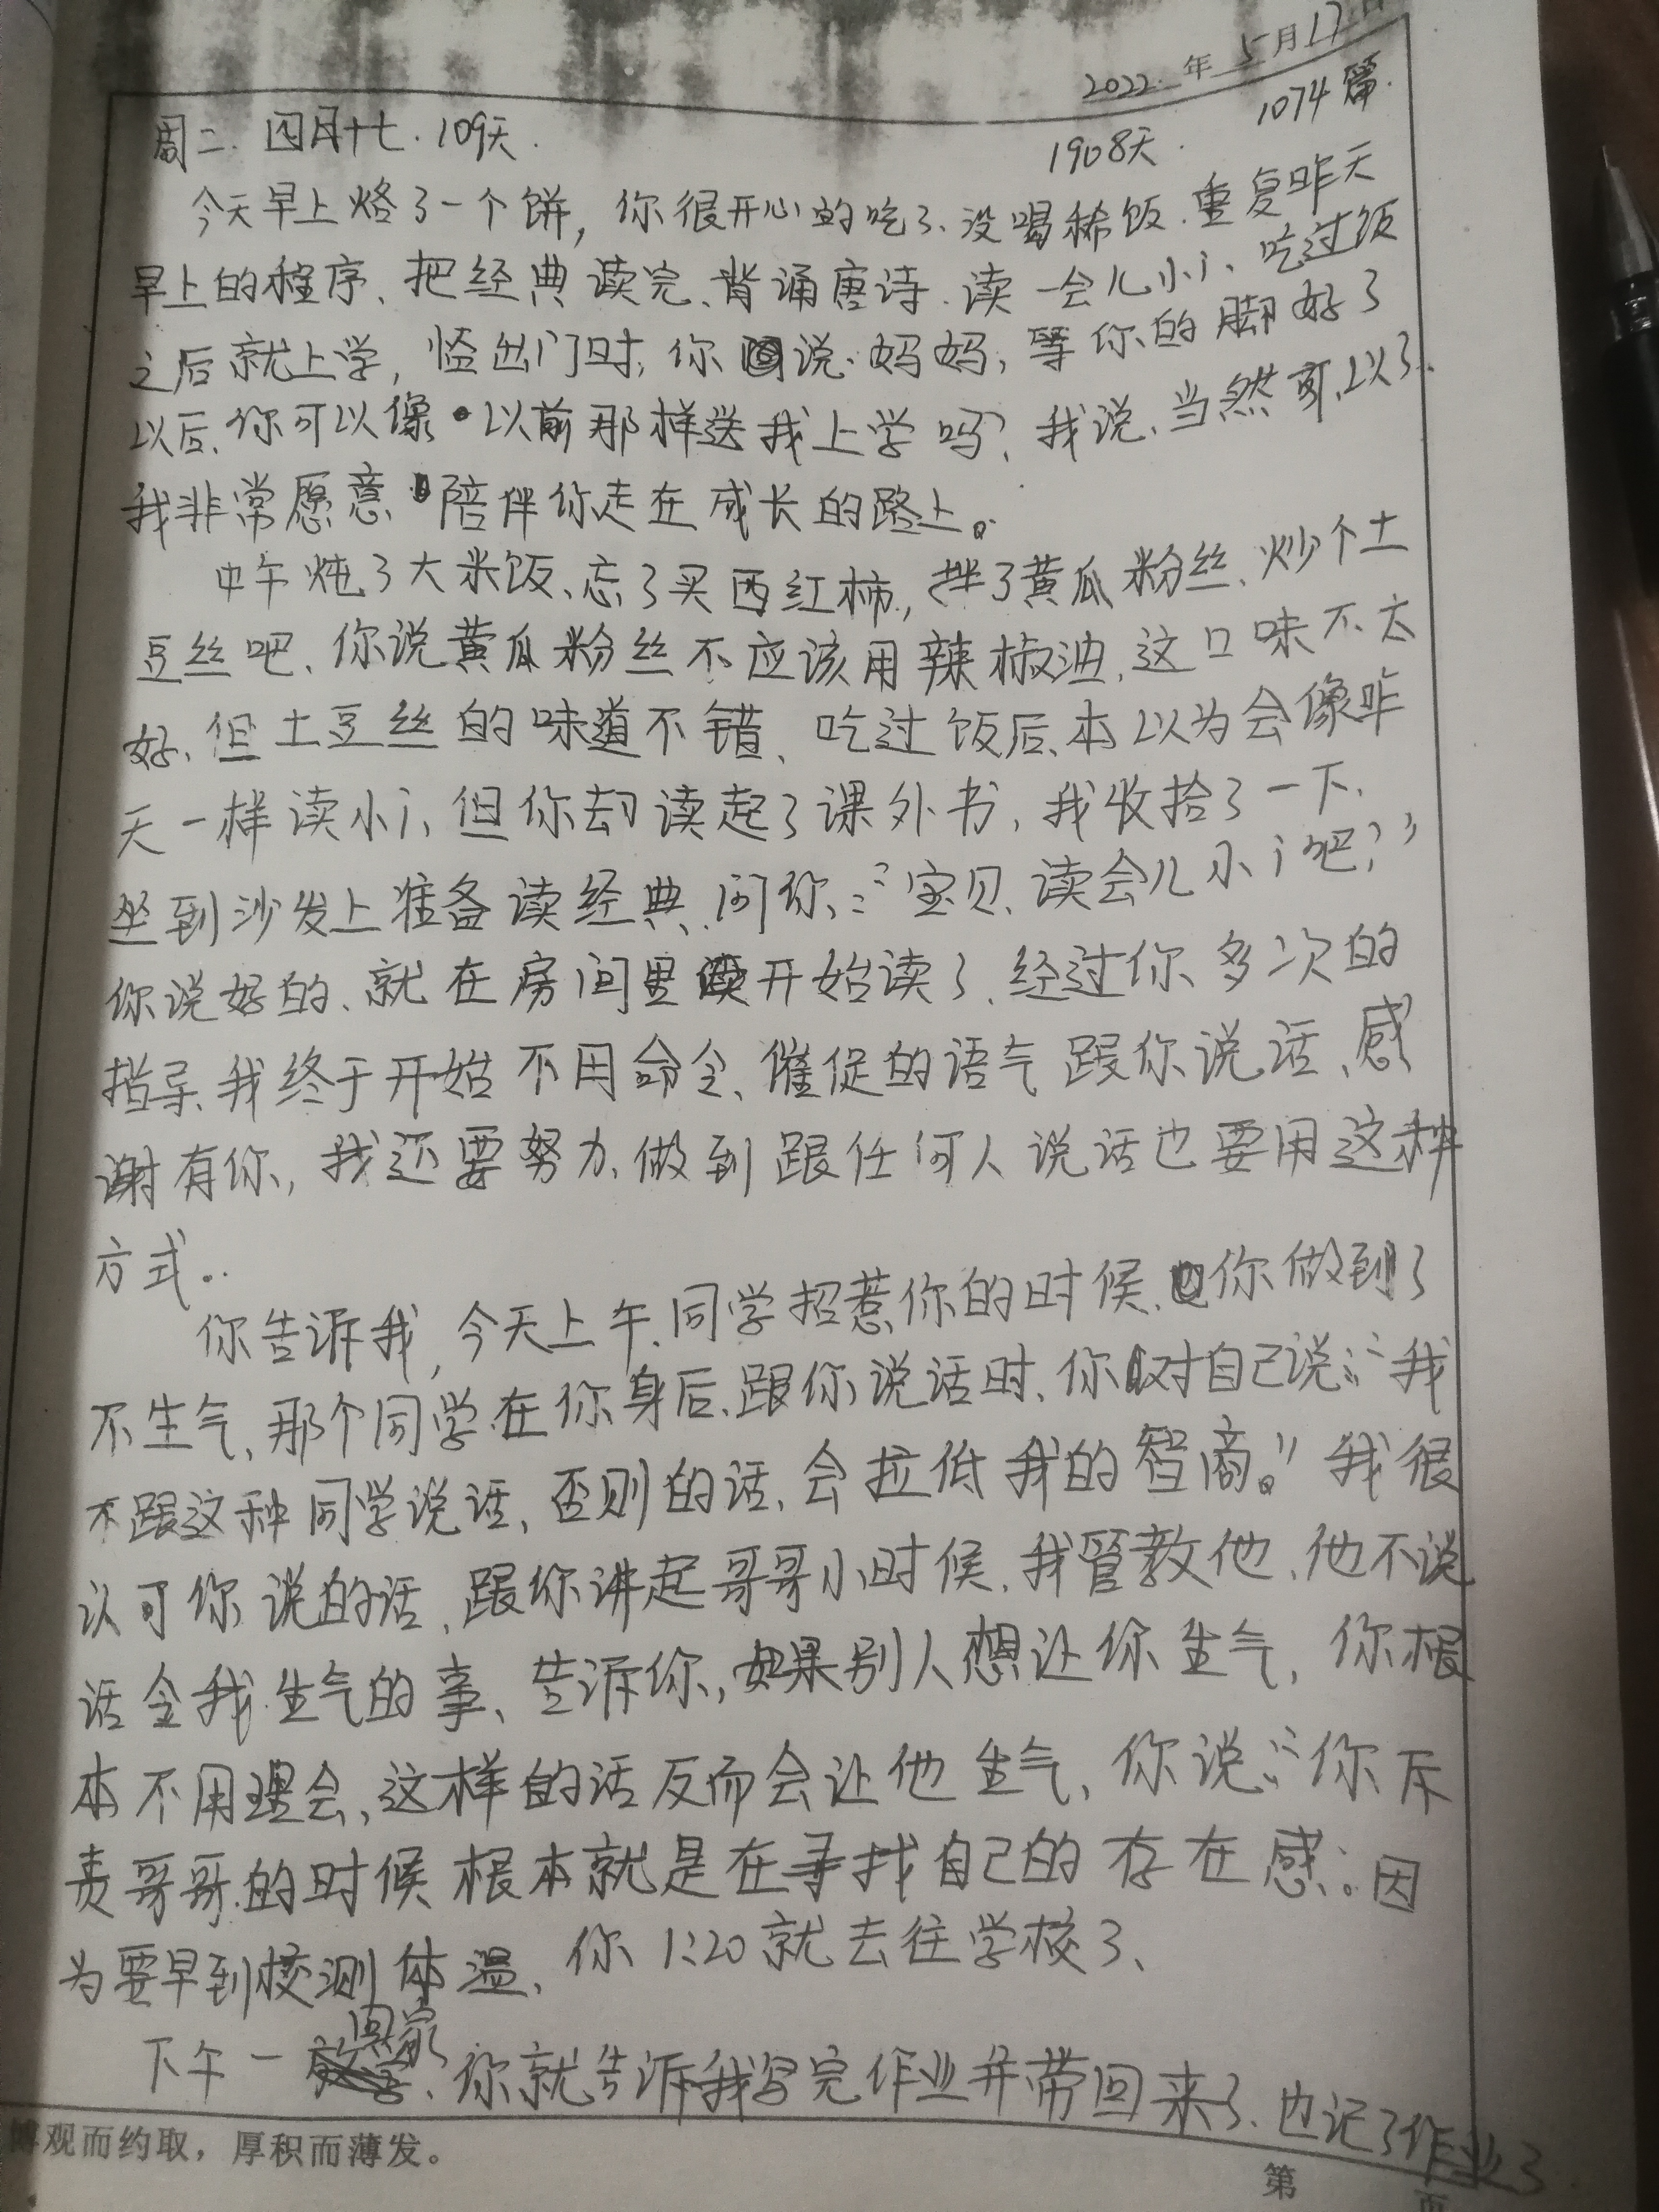 2022.年5月17日
周二.四月十七.109天.
1908天.
1074篇.
今天早上烙了一个饼,你很开心的吃了、没喝稀饭.重复昨天
早上的程序、把经典读完、背诵唐诗.读一会儿小i、吃过饭
之后就上学,临出门时,你说:妈妈,等你的脚好了
以后,你可以像以前那样送我上学吗?我说,当然可以了.
我非常愿意陪伴你走在成长的路上。
中午炖了大米饭、忘了买西红柿,拌了黄瓜粉丝、炒个土
豆丝吧、你说黄瓜粉丝不应该用辣椒油,这口味不太
好、但土豆丝的味道不错、吃过饭后、本以为会像昨
天一样读小i、但你却读起了课外书,我收拾了一下、
坐到沙发上准备读经典,问你:“宝贝、读会儿小i吧?”
你说好的、就在房间里开始读了、经过你多次的
指导、我终于开始不用命令、催促的语气跟你说话、感
谢有你,我还要努力、做到跟任何人说话也要用这种
方式。
你告诉我,今天上午、同学招惹你的时候、你做到了
不生气、那个同学在你身后、跟你说话时、你对自己说:“我
不跟这种同学说话、否则的话、会拉低我的智商。”我很
认可你说的话、跟你讲起哥哥小时候、我管教他、他不说
话令我生气的事、告诉你,如果别人想让你生气,你根
本不用理会、这样的话反而会让他生气、你说:“你斥
责哥哥的时候根本就是在寻找自己的存在感”。因
为要早到校测体温、你1:20就去往学校了、
下午一回家、你就告诉我写完作业并带回来了、也记了作业了
博观而约取,厚积而薄发。
第 页